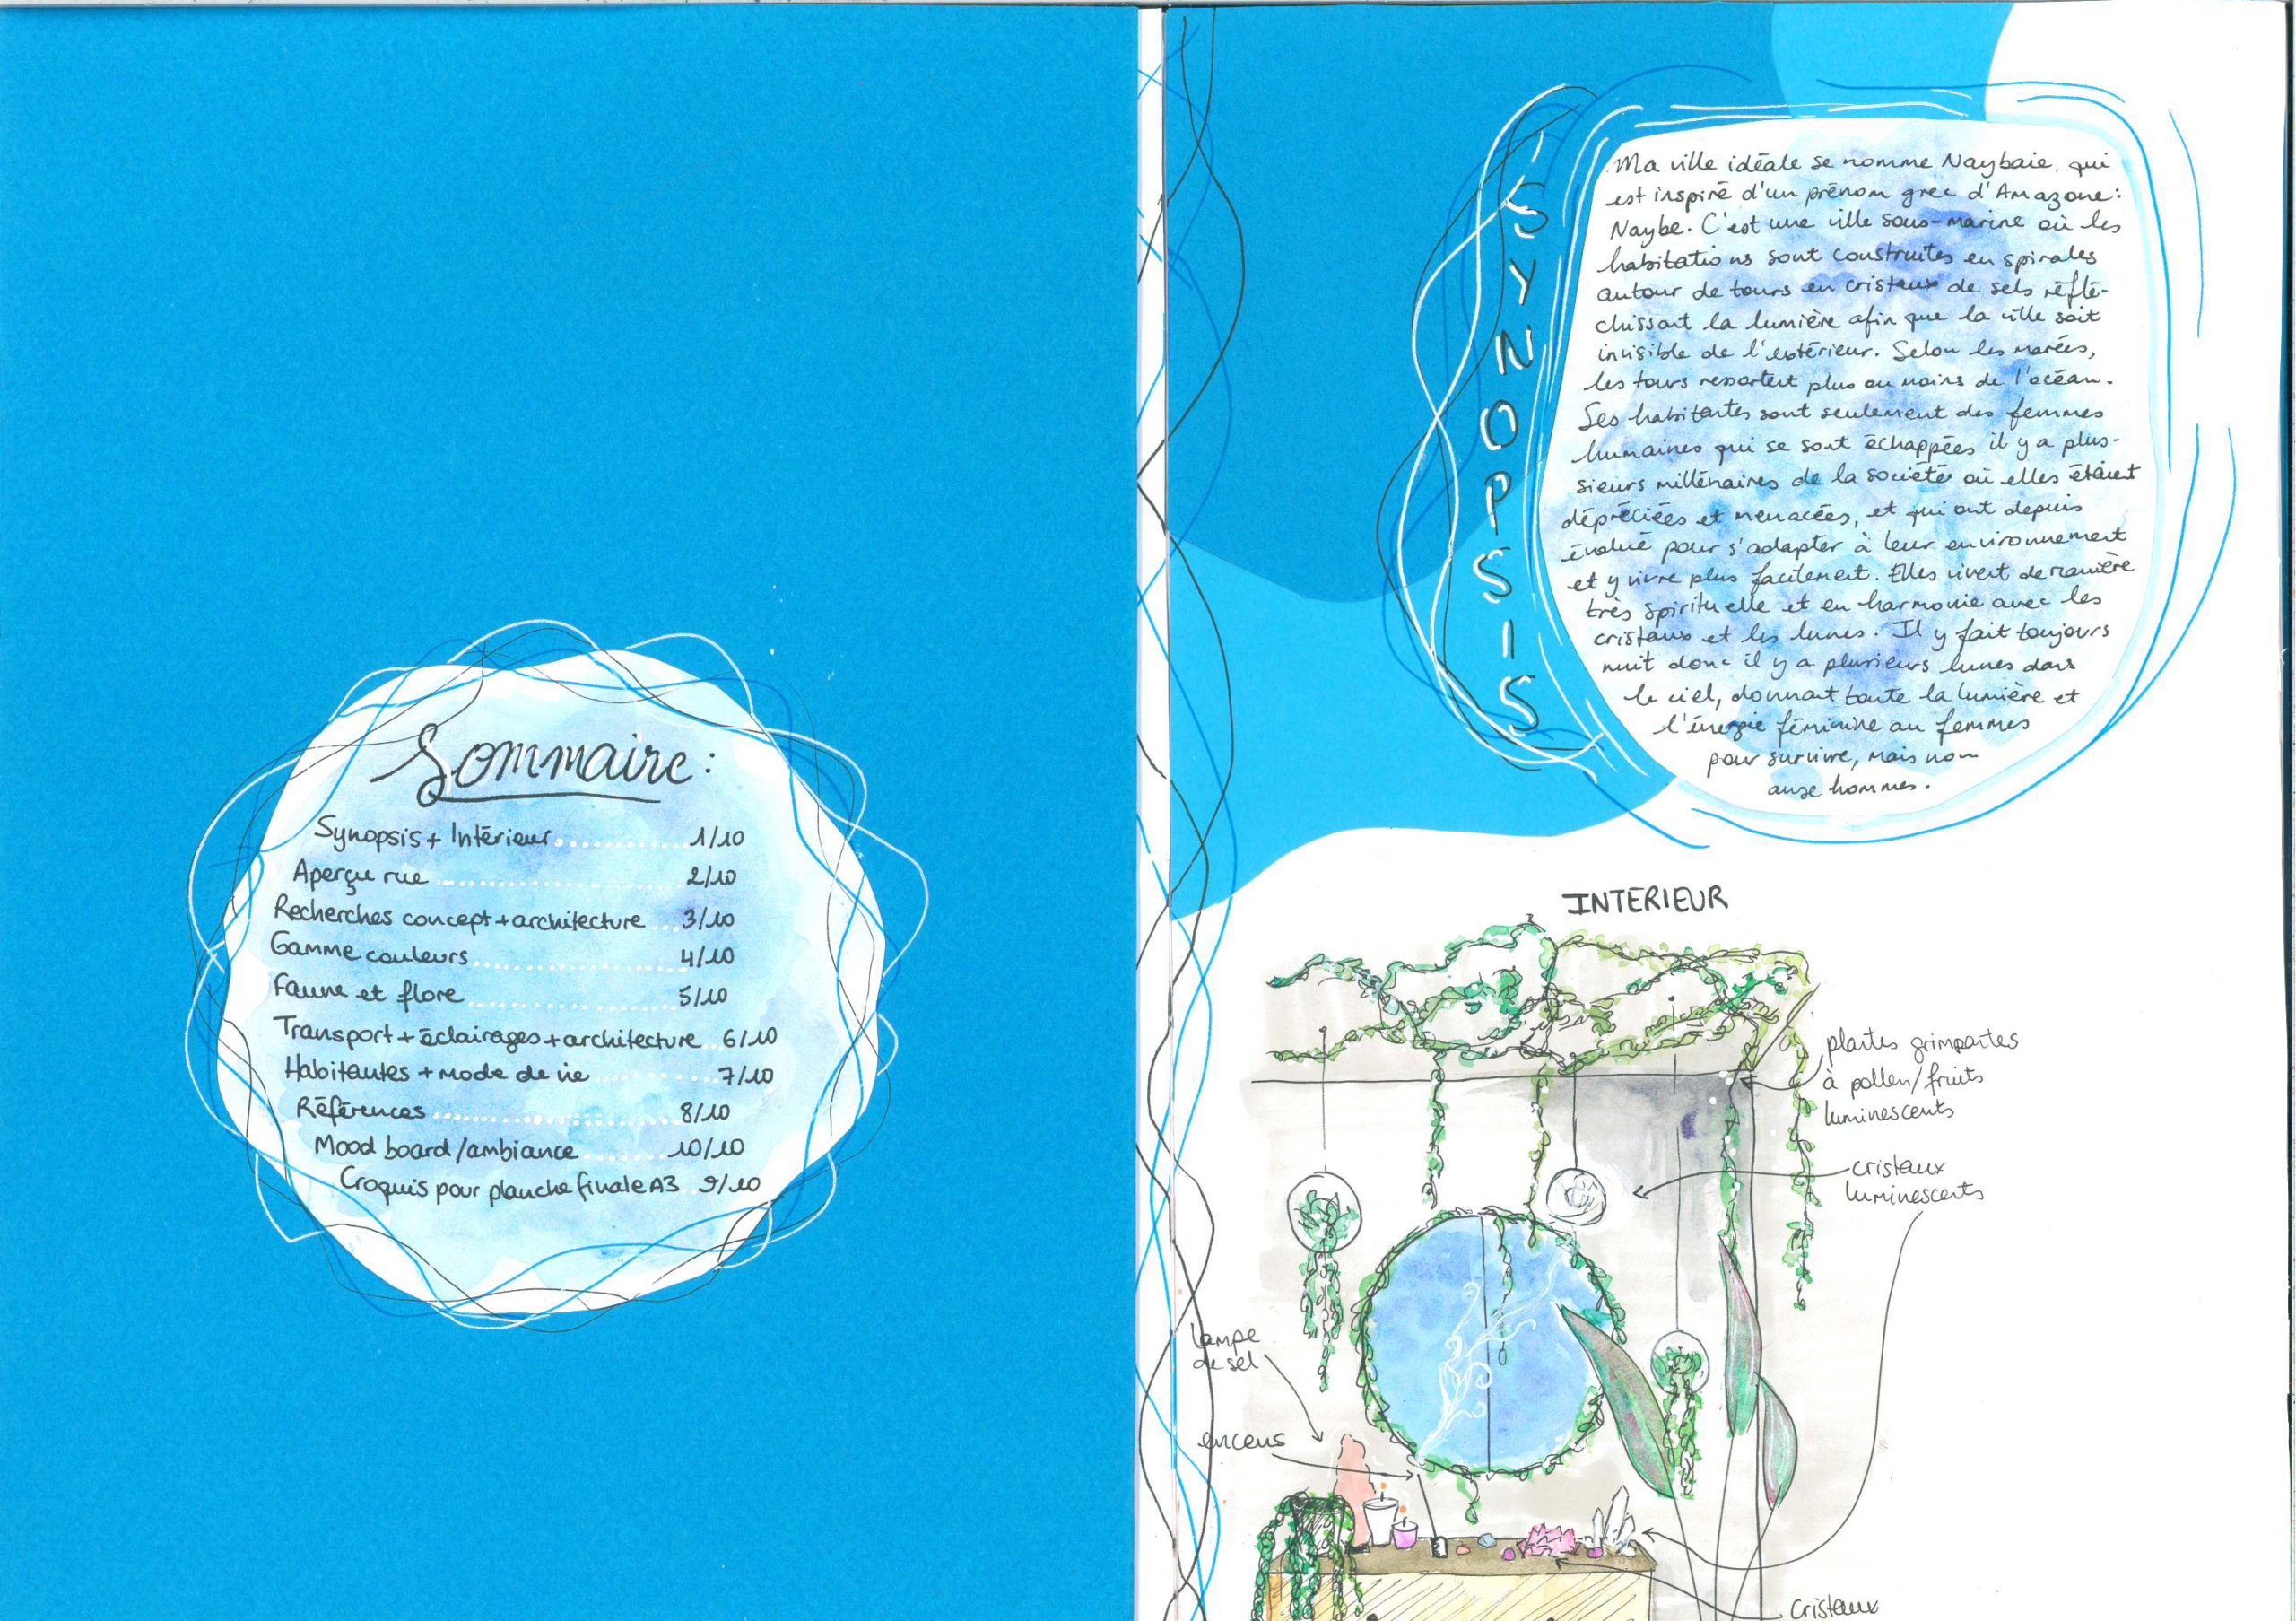 Sommaire :
Synopsis + Intérieur ............ 1/10
Aperçu rue ............ 2/10
Recherches concept + architecture ... 3/10
Gamme couleurs ............ 4/10
Faune et flore ............ 5/10
Transport + éclairages + architecture .. 6/10
Habitantes + mode de vie ............ 7/10
Références ............ 8/10
Mood board/ambiance ............ 10/10
Croquis pour planche finale A3 9/10
SYNOPSIS
Ma ville idéale se nomme Naybaie, qui
est inspiré d'un prénom grec d'Amazone :
Naybe. C'est une ville sous-marine où les
habitations sont construites en spirales
autour de tours en cristaux de sels réflé-
chissant la lumière afin que la ville soit
invisible de l'extérieur. Selon les marées,
les tours ressortent plus ou moins de l'océan.
Ses habitantes sont seulement des femmes
humaines qui se sont échappées il y a plu-
sieurs millénaires de la société où elles étaient
dépréciées et menacées, et qui ont depuis
évolué pour s'adapter à leur environnement
et y vivre plus facilement. Elles vivent de manière
très spirituelle et en harmonie avec les
cristaux et les lunes. Il y fait toujours
nuit donc il y a plusieurs lunes dans
le ciel, donnant toute la lumière et
l'énergie féminine au femmes
pour survivre, mais non
aux hommes.
INTERIEUR
plantes grimpantes
à pollen/fruits
luminescents
cristaux
luminescents
lampe
de sel
encens
cristaux